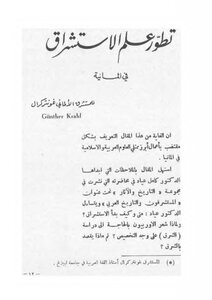 تطور علم الاستشراق
في المانية
للمستشرق الألماني غونتر كرال
Günther Krahl
ان الغاية من هذا المقال التعريف بشكل
مقتضب بأعمال أبرز ممثلي العلوم العربية والاسلامية
في المانيا .
استهل المقال بالملاحظات التي ابداها
الدكتور كامل عياد في محاضرته التي نشرت في
مجموعة « التاريخ والآثار » تحت عنوان
« المستشرقون والتاريخ العربي » ويتساءل
الدكتور عياد : متى وكيف بدأ الاستشراق ؟
ولماذا شعر الاوربيون بالحاجة الى دراسة
( الشرق ) على وجه التخصيص ؟ ثم ماذا يقصد
بالشرق ؟
(*) المستشرق غونتر كرال : أستاذ اللغة العربية في جامعة ليبزغ .
- ١٢ -